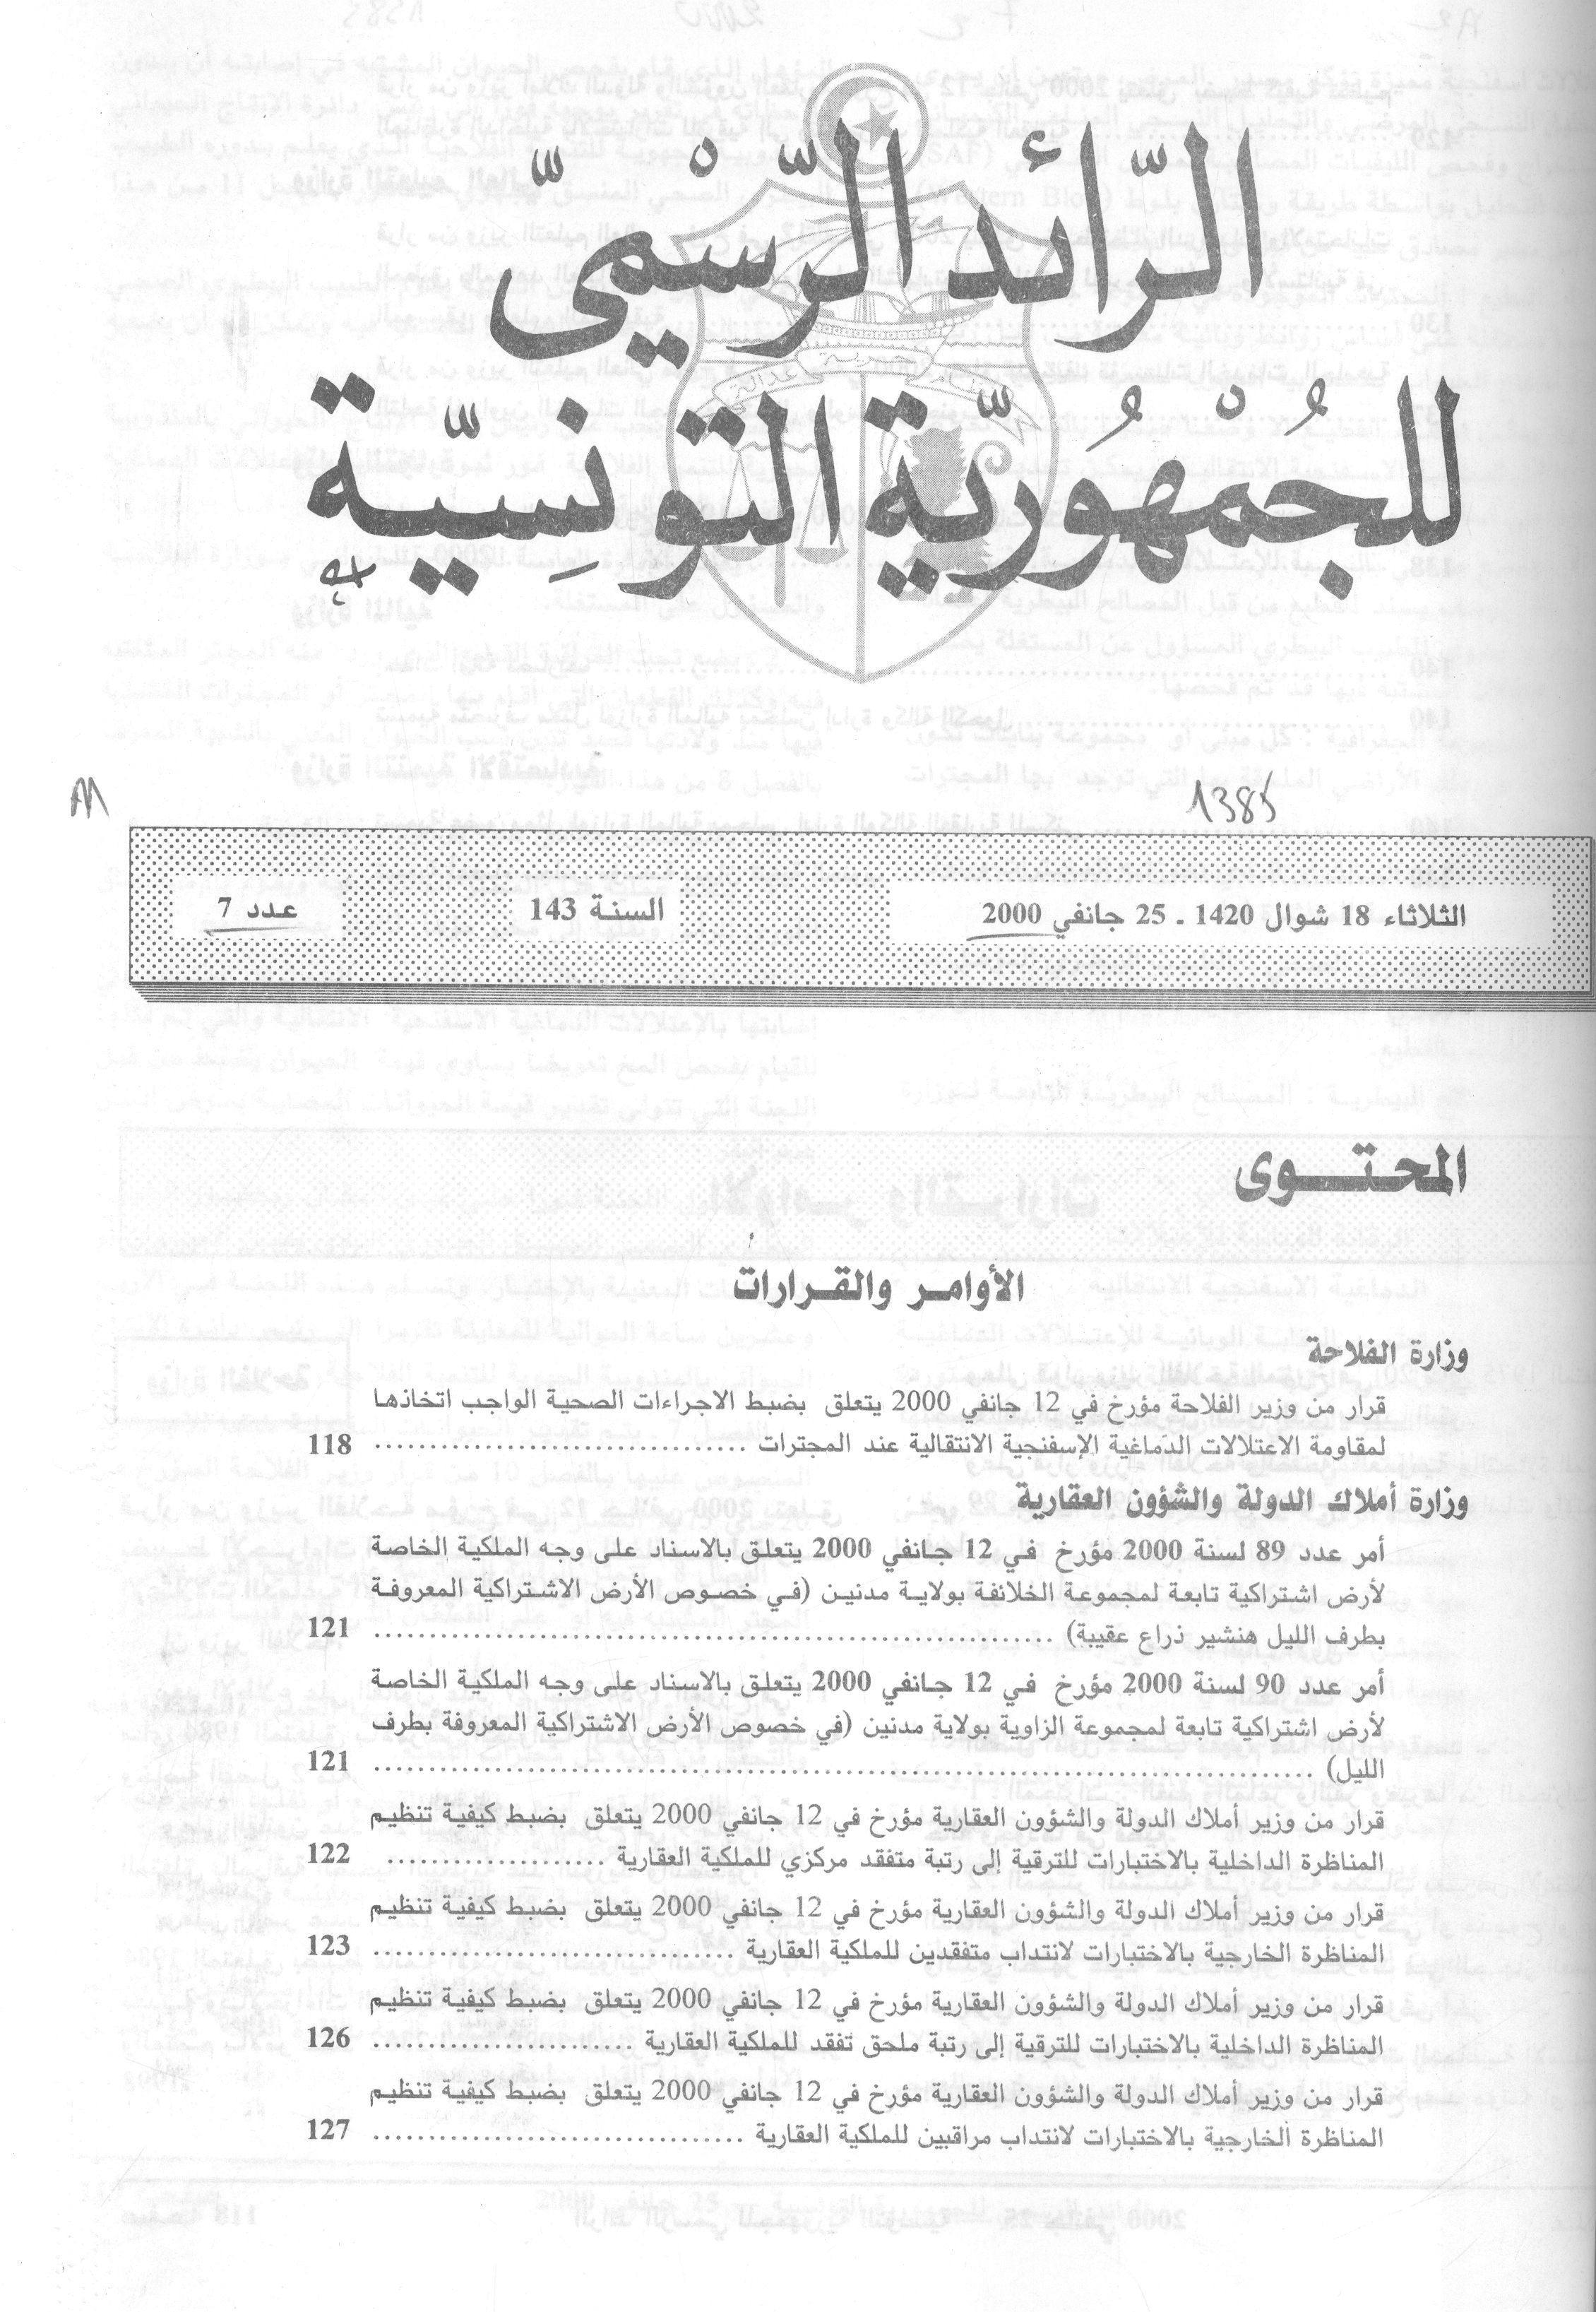 الرّائد الرّسْميّ
للجُمْهُوريّة التّونِسيّة
1385
الثلاثاء 18 شوال 1420 ـ 25 جانفي 2000
السنة 143
عدد 7
المحتوى
الأوامر والقرارات
وزارة الفلاحة
قرار من وزير الفلاحة مؤرخ في 12 جانفي 2000 يتعلق بضبط الاجراءات الصحية الواجب اتخاذها
لمقاومة الاعتلالات الدماغية الإسفنجية الانتقالية عند المجترات ........................................ 118
وزارة أملاك الدولة والشؤون العقارية
أمر عدد 89 لسنة 2000 مؤرخ في 12 جانفي 2000 يتعلق بالاسناد على وجه الملكية الخاصة
لأرض اشتراكية تابعة لمجموعة الخلائفة بولاية مدنين (في خصوص الأرض الاشتراكية المعروفة
بطرف الليل هنشير ذراع عقيبة) ........................................ 121
أمر عدد 90 لسنة 2000 مؤرخ في 12 جانفي 2000 يتعلق بالاسناد على وجه الملكية الخاصة
لأرض اشتراكية تابعة لمجموعة الزاوية بولاية مدنين (في خصوص الأرض الاشتراكية المعروفة بطرف
الليل) ........................................ 121
قرار من وزير أملاك الدولة والشؤون العقارية مؤرخ في 12 جانفي 2000 يتعلق بضبط كيفية تنظيم
المناظرة الداخلية بالاختبارات للترقية إلى رتبة متفقد مركزي للملكية العقارية .................... 122
قرار من وزير أملاك الدولة والشؤون العقارية مؤرخ في 12 جانفي 2000 يتعلق بضبط كيفية تنظيم
المناظرة الخارجية بالاختبارات لانتداب متفقدين للملكية العقارية .............................. 123
قرار من وزير أملاك الدولة والشؤون العقارية مؤرخ في 12 جانفي 2000 يتعلق بضبط كيفية تنظيم
المناظرة الداخلية بالاختبارات للترقية إلى رتبة ملحق تفقد للملكية العقارية .................... 126
قرار من وزير أملاك الدولة والشؤون العقارية مؤرخ في 12 جانفي 2000 يتعلق بضبط كيفية تنظيم
المناظرة الخارجية بالاختبارات لانتداب مراقبين للملكية العقارية .............................. 127